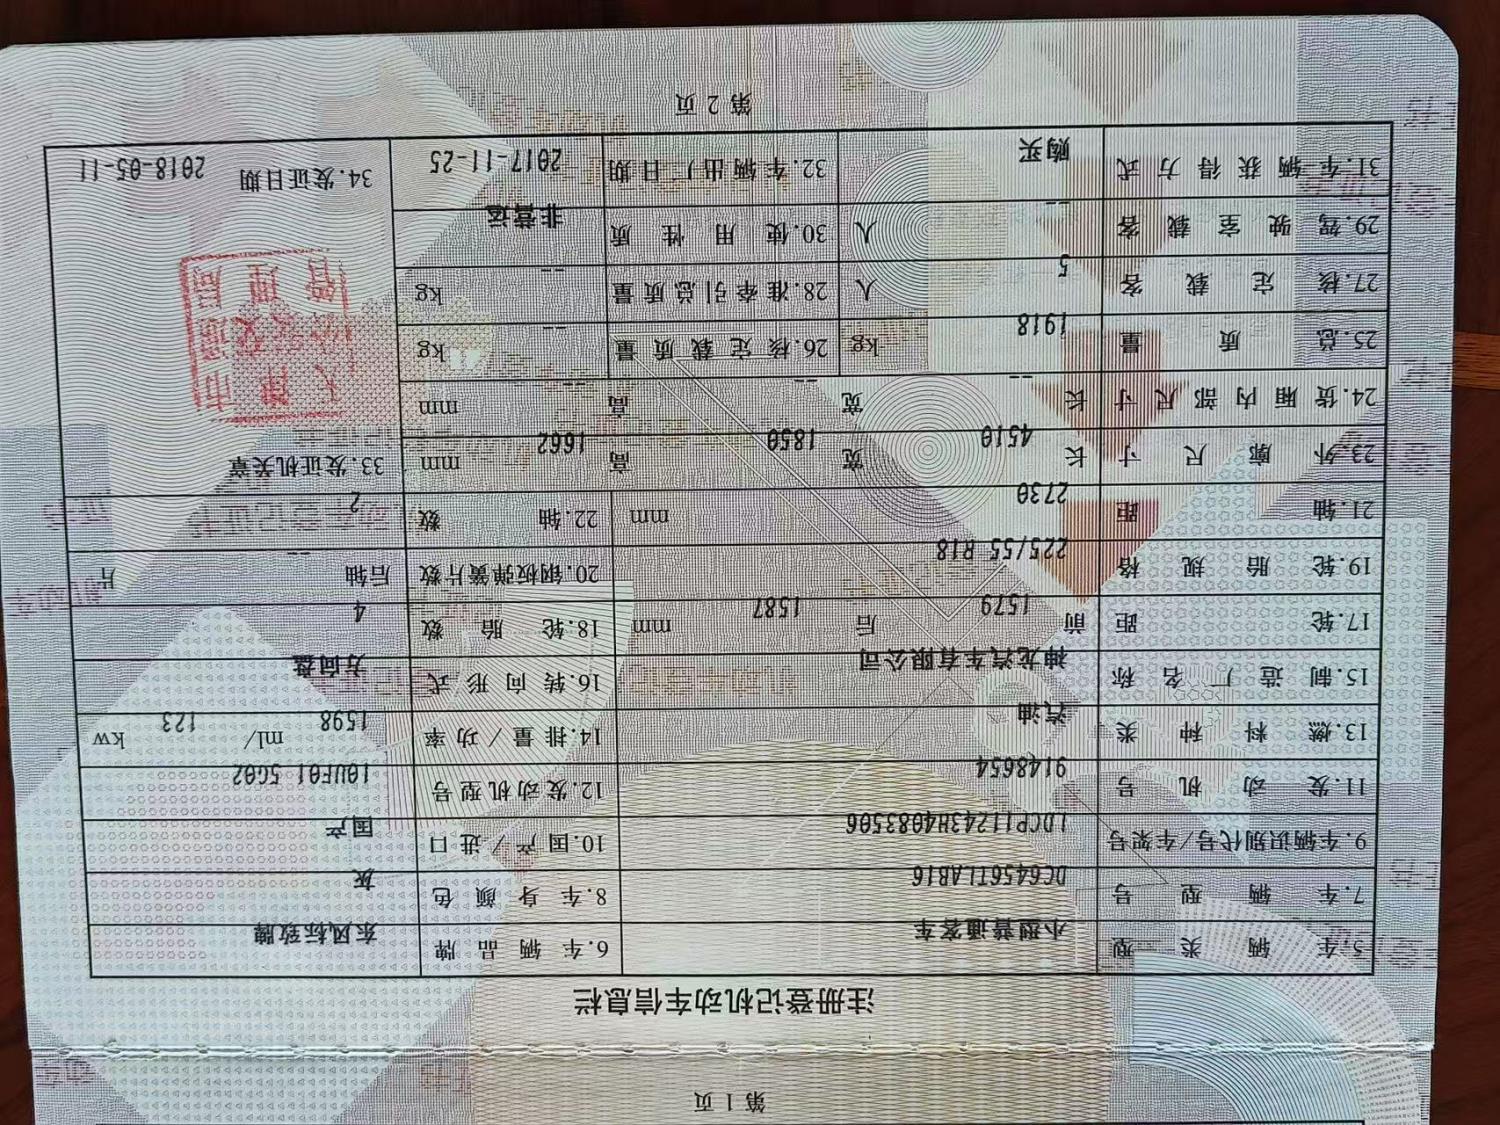 第 1 页
注册登记机动车信息栏
5.车辆类型 小型普通客车 6.车辆品牌 东风标致牌
7.车辆型号 DC6456TLAB16 8.车身颜色 灰
9.车辆识别代号/车架号 LDCP11243H4083506 10.国产/进口 国产
11.发动机号 9148654 12.发动机型号 10UF01 5G02
13.燃料种类 汽油 14.排量/功率 1598 ml/ 123 kw
15.制造厂名称 神龙汽车有限公司 16.转向形式 方向盘
17.轮距 前 1579 后 1587 mm 18.轮胎数 4
19.轮胎规格 225/55 R18 20.钢板弹簧片数 后轴 -- 片
21.轴距 2730 mm 22.轴数 2
23.外廓尺寸 长 4510 宽 1850 高 1662 mm 33.发证机关章
24.货厢内部尺寸 长 -- 宽 -- 高 -- mm
25.总质量 1918 kg 26.核定载质量 -- kg
27.核定载客 5 人 28.准牵引总质量 -- kg
29.驾驶室载客 -- 人 30.使用性质 非营运
31.车辆获得方式 购买 32.车辆出厂日期 2017-11-25 34.发证日期 2018-05-11
第 2 页